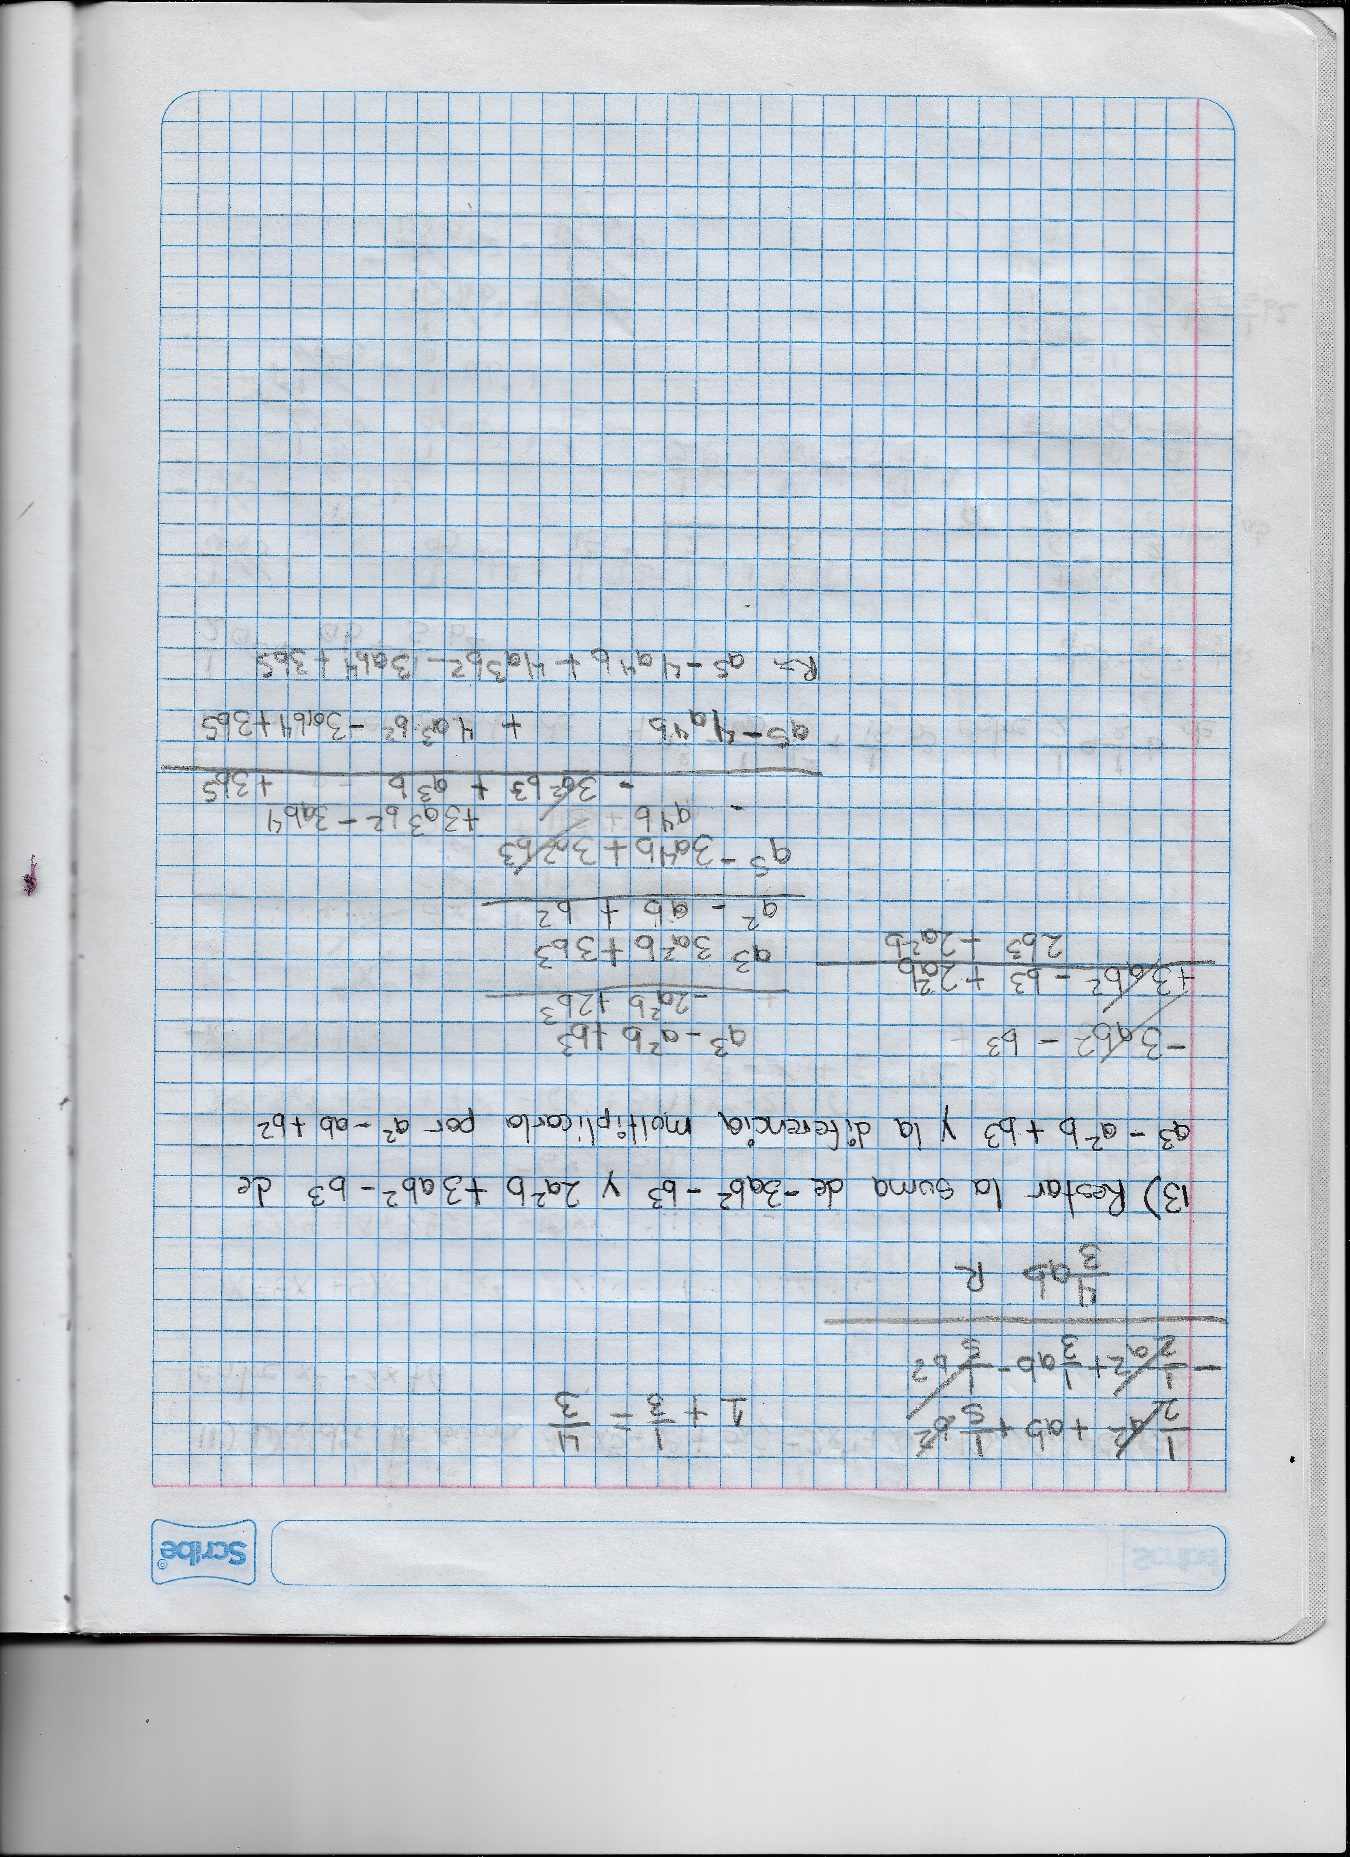 Scribe®
1/2 a² + ab + 1/5 b²
1 + 1/3 = 4/3
- 1/2 a² + 1/3 ab - 1/5 b²
4/3 ab R
13) Restar la suma de -3ab² - b³ y 2a²b + 3ab² - b³ de
a³ - a²b + b³ y la diferencia moltiplicarla por a² - ab + b²
-3ab² - b³
+3ab² - b³ + 2a²b
2b³ - 2a²b
a³ - a²b + b³
- 2a²b + 2b³
a³ 3a²b + 3b³
a² - ab + b²
a⁵ - 3a⁴b + 3a²b³
- a⁴b + 3a³b² - 3ab⁴
- 3a²b³ + a³b + 3b⁵
a⁵ - 4a⁴b + 4a³b² - 3ab⁴ + 3b⁵
R= a⁵ - 4a⁴b + 4a³b² - 3ab⁴ + 3b⁵